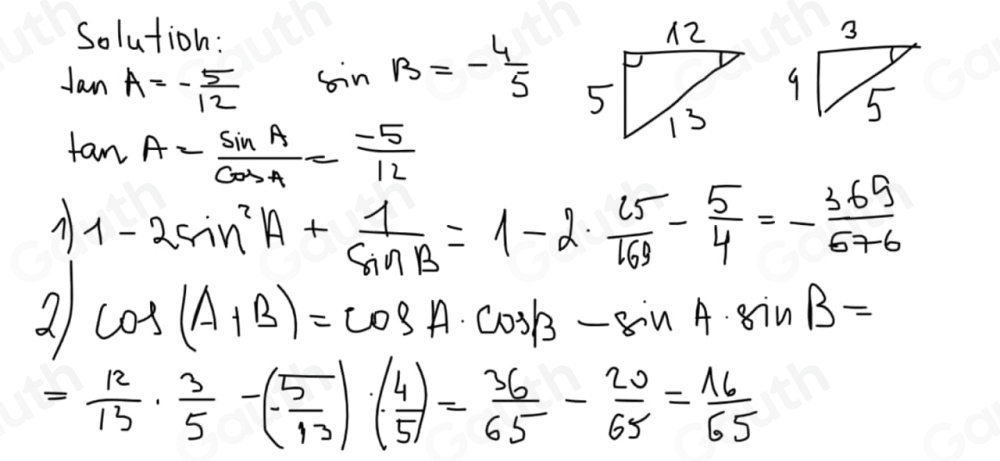 Solution:
tan A = -5/12 sin B = -4/5
12
5
13
3
4
5
tan A = sin A/cos A = -5/12
1) 1 - 2sin²A + 1/sin B = 1 - 2 · 25/169 - 5/4 = -369/676
2) cos(A+B) = cos A · cos B - sin A · sin B =
= 12/13 · 3/5 - (-5/13) · (-4/5) = 36/65 - 20/65 = 16/65